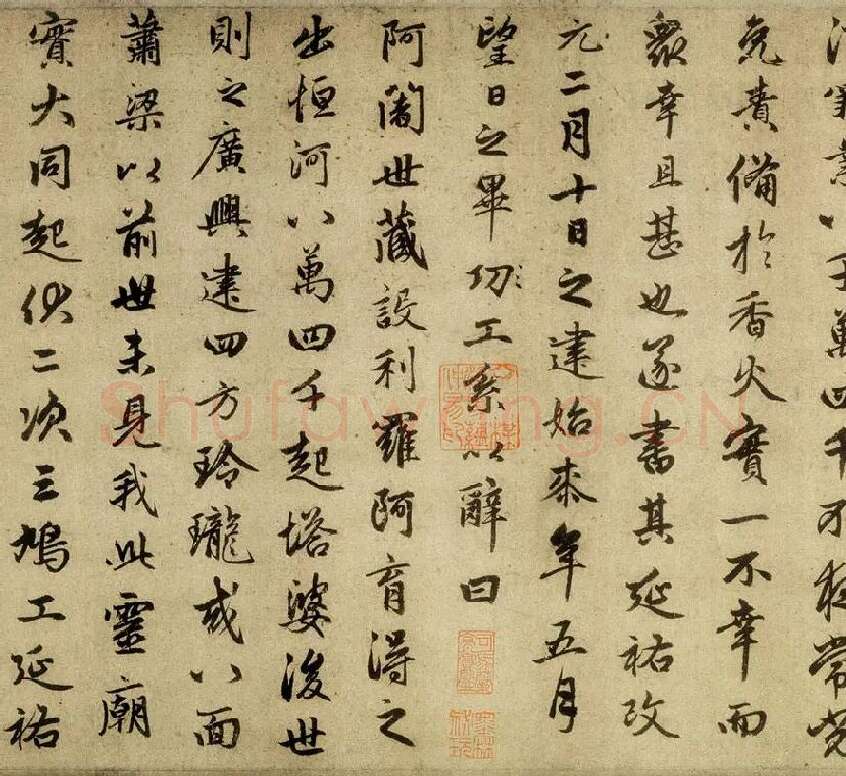 萬四千不
免責備於香火實一不幸而
眾幸且甚也遂書其延祐改
元二月十日之建始來年五月
望日之畢功工系以辭曰
阿闍世藏設利羅阿育得之
出恒河八萬四千起塔婆後世
則之廣興建四方玲瓏或八面
蕭梁以前世未見我此靈廟
實大同起伏二次三鳩工延祐
Shufawang.CN